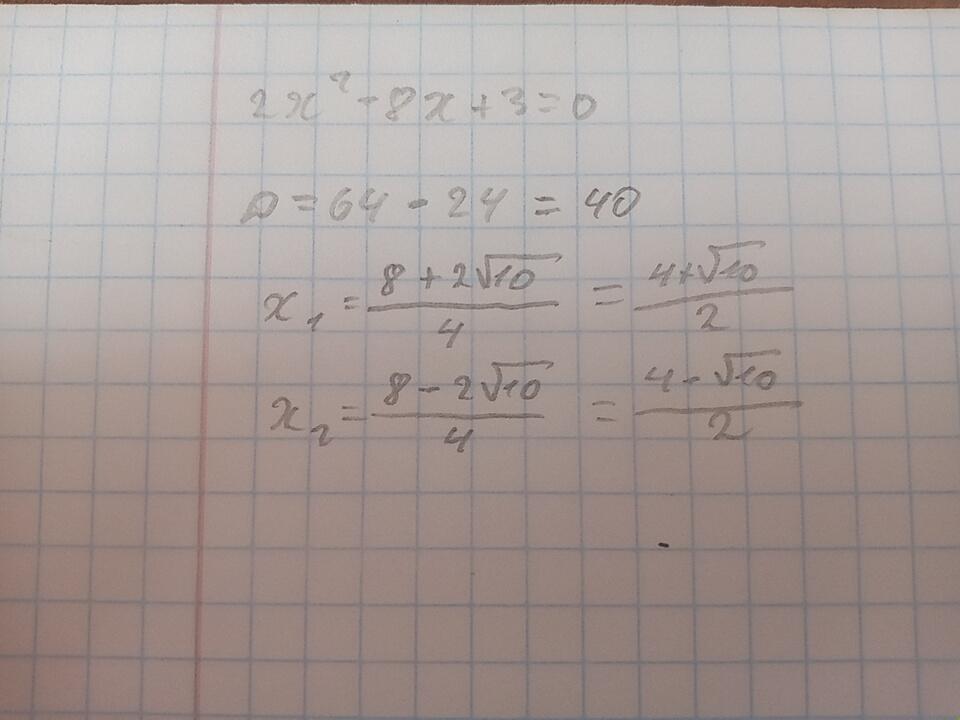 2x² - 8x + 3 = 0
D = 64 - 24 = 40
x₁ = (8 + 2√10)/4 = (4 + √10)/2
x₂ = (8 - 2√10)/4 = (4 - √10)/2